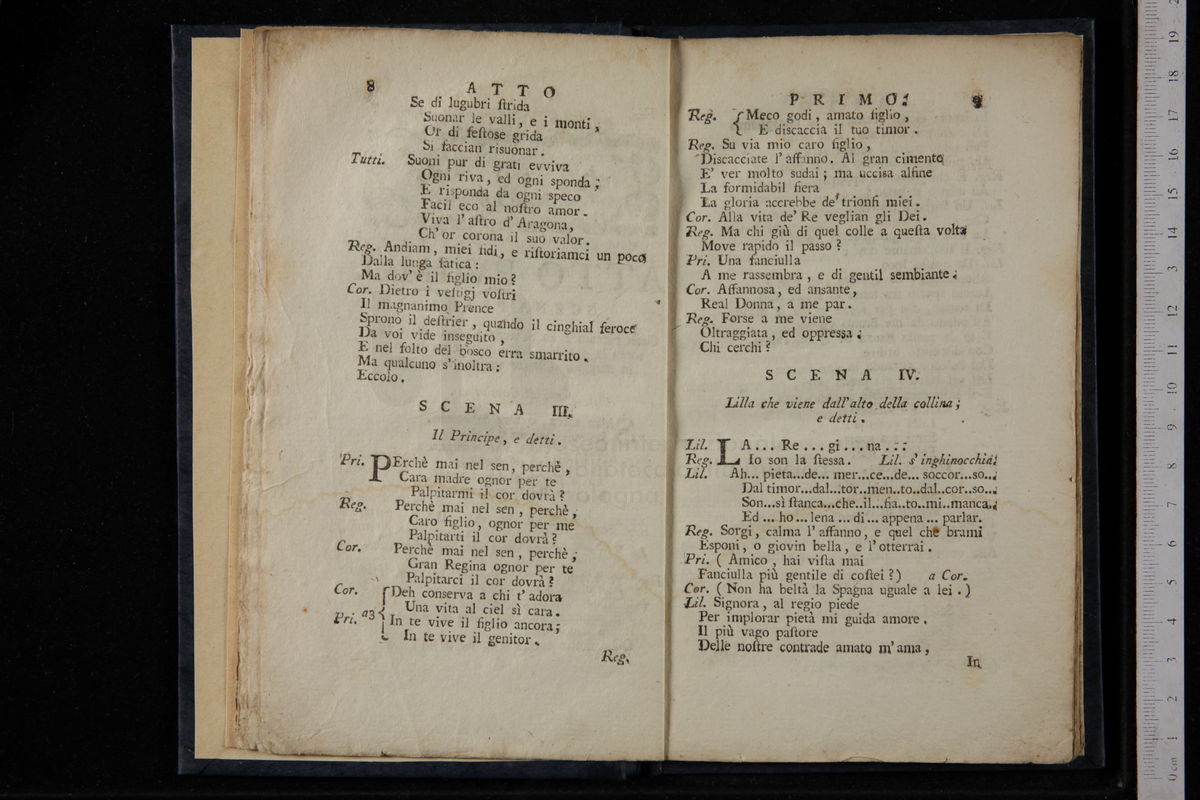 8
ATTO
Se di lugubri ſtrida
Suonar le valli, e i monti,
Or di feſtose grida
Si faccian risuonar.
Tutti. Suoni pur di grati evviva
Ogni riva, ed ogni sponda;
E risponda da ogni speco
Facil eco al noſtro amor.
Viva l'aſtro d'Aragona,
Ch'or corona il suo valor.
Reg. Andiam, miei fidi, e riſtoriamci un poco
Dalla lunga fatica:
Ma dov'è il figlio mio?
Cor. Dietro i veſtigj voſtri
Il magnanimo Prence
Spronò il deſtrier, quando il cinghial feroce
Da voi vide inseguito,
E nel folto del bosco erra smarrito.
Ma qualcuno s'inoltra:
Eccolo.
SCENA III.
Il Principe, e detti.
Pri. PErchè mai nel sen, perchè,
Cara madre ognor per te
Palpitarmi il cor dovrà?
Reg. Perchè mai nel sen, perchè,
Caro figlio, ognor per me
Palpitarti il cor dovrà?
Cor. Perchè mai nel sen, perchè,
Gran Regina ognor per te
Palpitarci il cor dovrà?
Cor. Deh conserva a chi t'adora
Una vita al ciel sì cara.
Pri. a3 In te vive il figlio ancora;
In te vive il genitor.
Reg.
PRIMO.
9
Reg. Meco godi, amato figlio,
E discaccia il tuo timor.
Reg. Su via mio caro figlio,
Discacciate l'affanno. Al gran cimento
E' ver molto sudai; ma uccisa alfine
La formidabil fiera
La gloria accrebbe de' trionfi miei.
Cor. Alla vita de' Re veglian gli Dei.
Reg. Ma chi giù di quel colle a queſta volta
Move rapido il passo?
Pri. Una fanciulla
A me rassembra, e di gentil sembiante.
Cor. Affannosa, ed ansante,
Real Donna, a me par.
Reg. Forse a me viene
Oltraggiata, ed oppressa.
Chi cerchi?
SCENA IV.
Lilla che viene dall'alto della collina;
e detti.
Lil. LA... Re...gi...na...
Reg. Io son la ſtessa. Lil. s'inghinocchia.
Lil. Ah... pieta...de... mer...ce...de... soccor...so...
Dal timor...dal...tor..men..to..dal..cor..so...
Son...sì ſtanca...che..il...fia..to..mi..manca...
Ed... ho... lena... di... appena... parlar.
Reg. Sorgi, calma l'affanno, e quel che brami
Esponi, o giovin bella, e l'otterrai.
Pri. (Amico, hai viſta mai
Fanciulla più gentile di coſtei?) a Cor.
Cor. (Non ha beltà la Spagna uguale a lei.)
Lil. Signora, al regio piede
Per implorar pietà mi guida amore.
Il più vago paſtore
Delle noſtre contrade amato m'ama,
In
0 cm 1 2 3 4 5 6 7 8 9 10 11 12 13 14 15 16 17 18 19